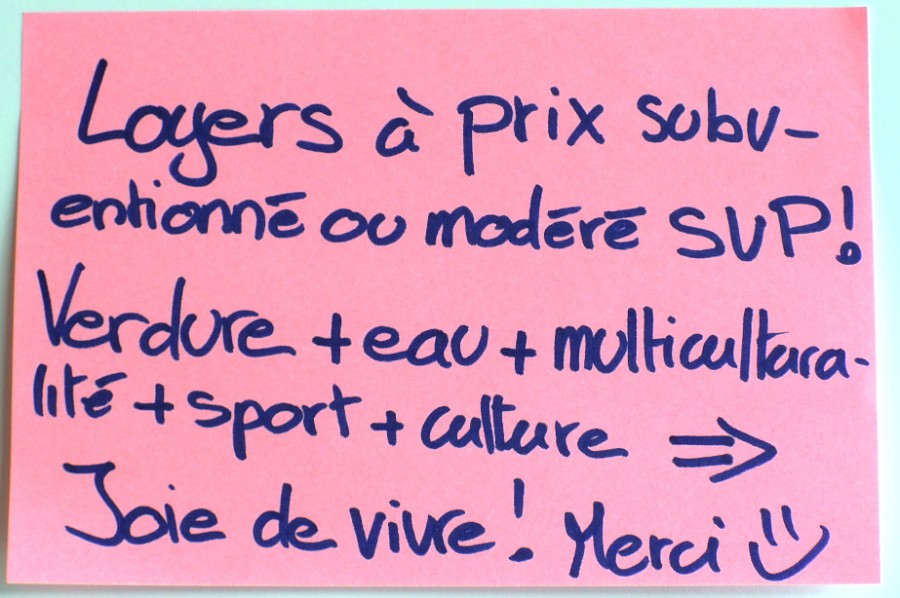 Loyers à prix subv-
entionné ou modéré SVP!
Verdure + eau + multicultura-
lité + sport + culture ⇒
Joie de vivre! Merci